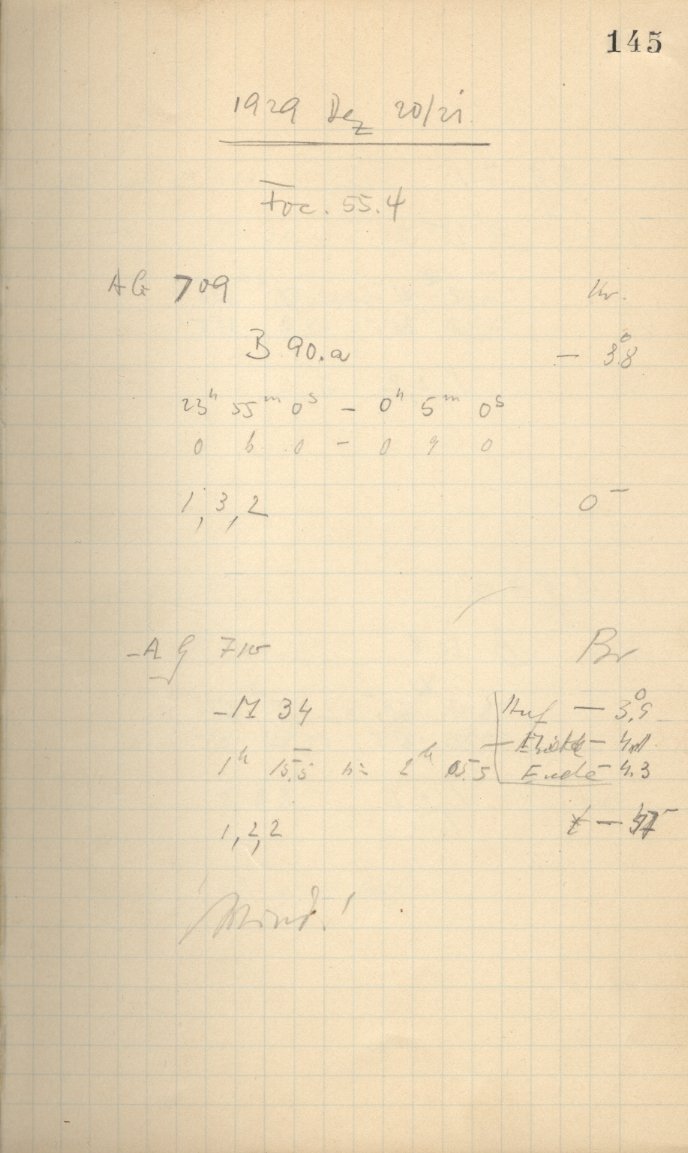 145
1929 Dez 20/21
Foc. 55.4
AG 709 Kr.
B 90.a — 3°8
23ʰ 55ᵐ 0ˢ — 0ʰ 5ᵐ 0ˢ
0 6 0 — 0 9 0
1, 3, 2 0 —
AG 710 Br
M 34 Auf — 3°9
Mitte — 4.1
1ʰ 15.5 bis 2ʰ 15.5 Ende — 4.3
1, 2, 2
Wind!